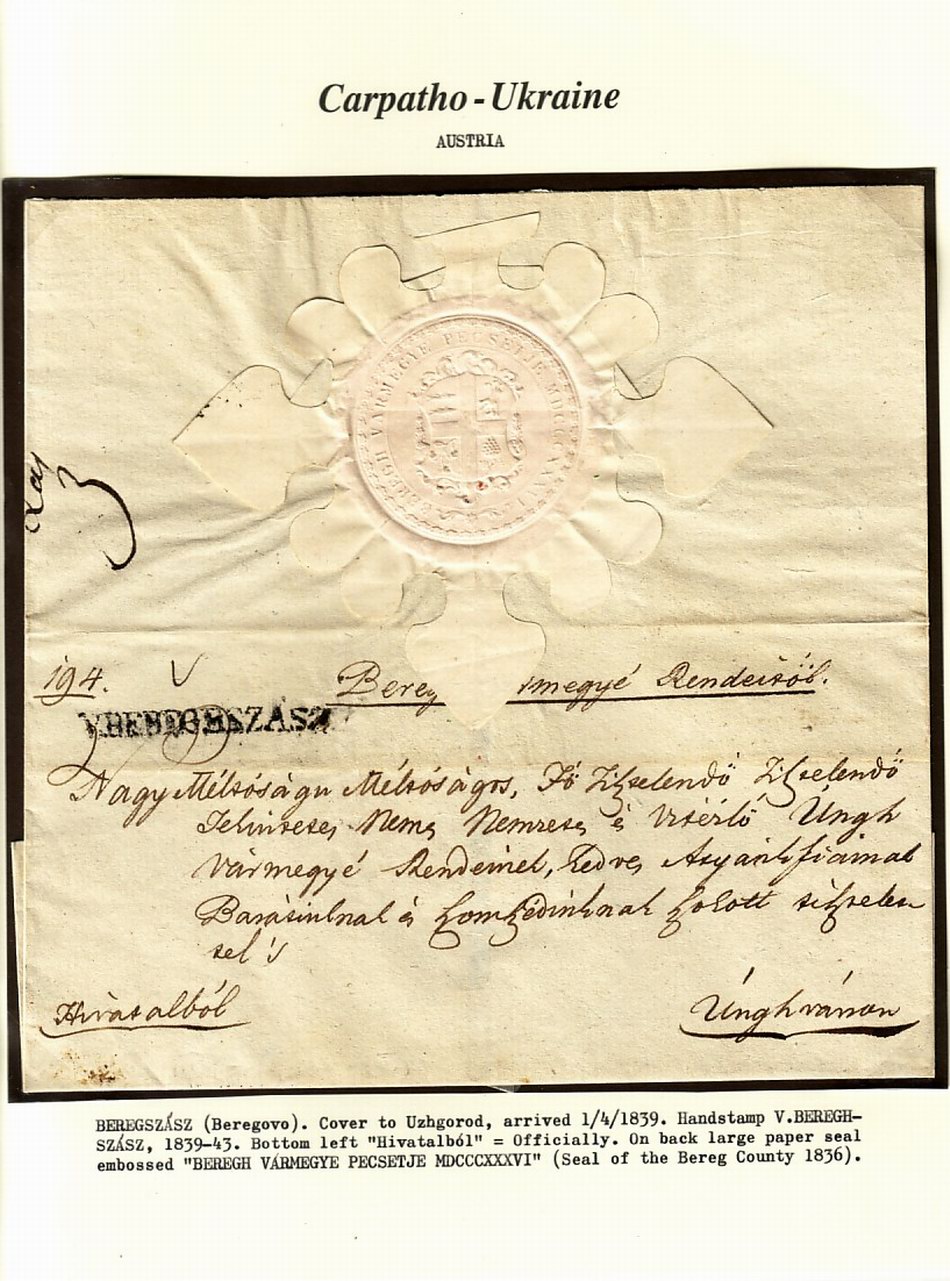 Carpatho-Ukraine
AUSTRIA
BEREGH VÁRMEGYE PECSETJE MDCCCXXXVI
194.
Bereg rmegyé Rendeitöl.
V.BEREGHSZÁSZ
Nagy Méltóságu Méltóságos, Fö Tisztelendö Tisztelendö
Nemes Nemzetes és Vitézlö Úngh
Vármegyé Rendeinek, Kedves Atyánkfiainak
Barátinknak és
Hivatalból
Únghváron
BEREGSZÁSZ (Beregovo). Cover to Uzhgorod, arrived 1/4/1839. Handstamp V.BEREGH-
SZÁSZ, 1839-43. Bottom left "Hivatalból" = Officially. On back large paper seal
embossed "BEREGH VÁRMEGYE PECSETJE MDCCCXXXVI" (Seal of the Bereg County 1836).